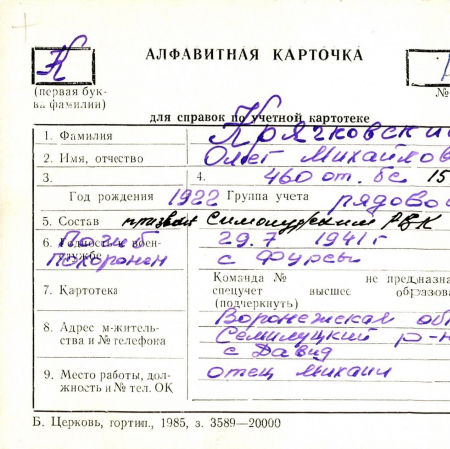 АЛФАВИТНАЯ КАРТОЧКА
К
(первая бук-
ва фамилии)
№
для справок по учетной картотеке
1. Фамилия Крячковский
2. Имя, отчество Олег Михайлов
3. 4. 460 от. бс 15
Год рождения 1922 Группа учета рядово
5. Состав призван Симонурским РВК
6. Годность к воен-
службе
Погиб 29.7 1941 г
похоронен с Фурсы
Команда № не предназна
7. Картотека спецучет высшее образова
(подчеркнуть)
8. Адрес м-житель-
ства и № телефона
Воронежская об
Семилуцкий р-н
с Давид
9. Место работы, дол-
жность и № тел. ОК
отец Михаил
Б. Церковь, гортип., 1985, з. 3589—20000